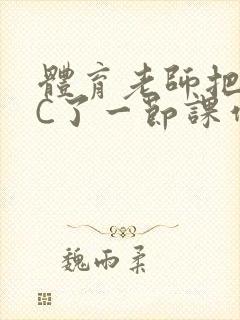 體育老師把
C了一節課
魏雨柔